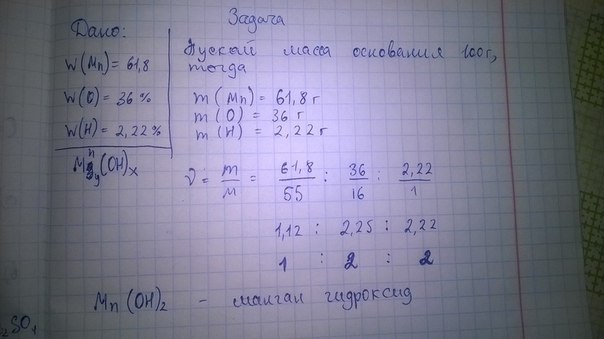 Задача
Дано:
W(Mn) = 61,8
W(O) = 36 %
W(H) = 2,22 %
Mny(OH)x
Пускай масса основания 100г,
тогда
m(Mn) = 61,8 г
m(O) = 36 г
m(H) = 2,22 г
ν = m/M = 61,8/55 : 36/16 : 2,22/1
1,12 : 2,25 : 2,22
1 : 2 : 2
Mn(OH)2 - манган гидроксид
2SO4